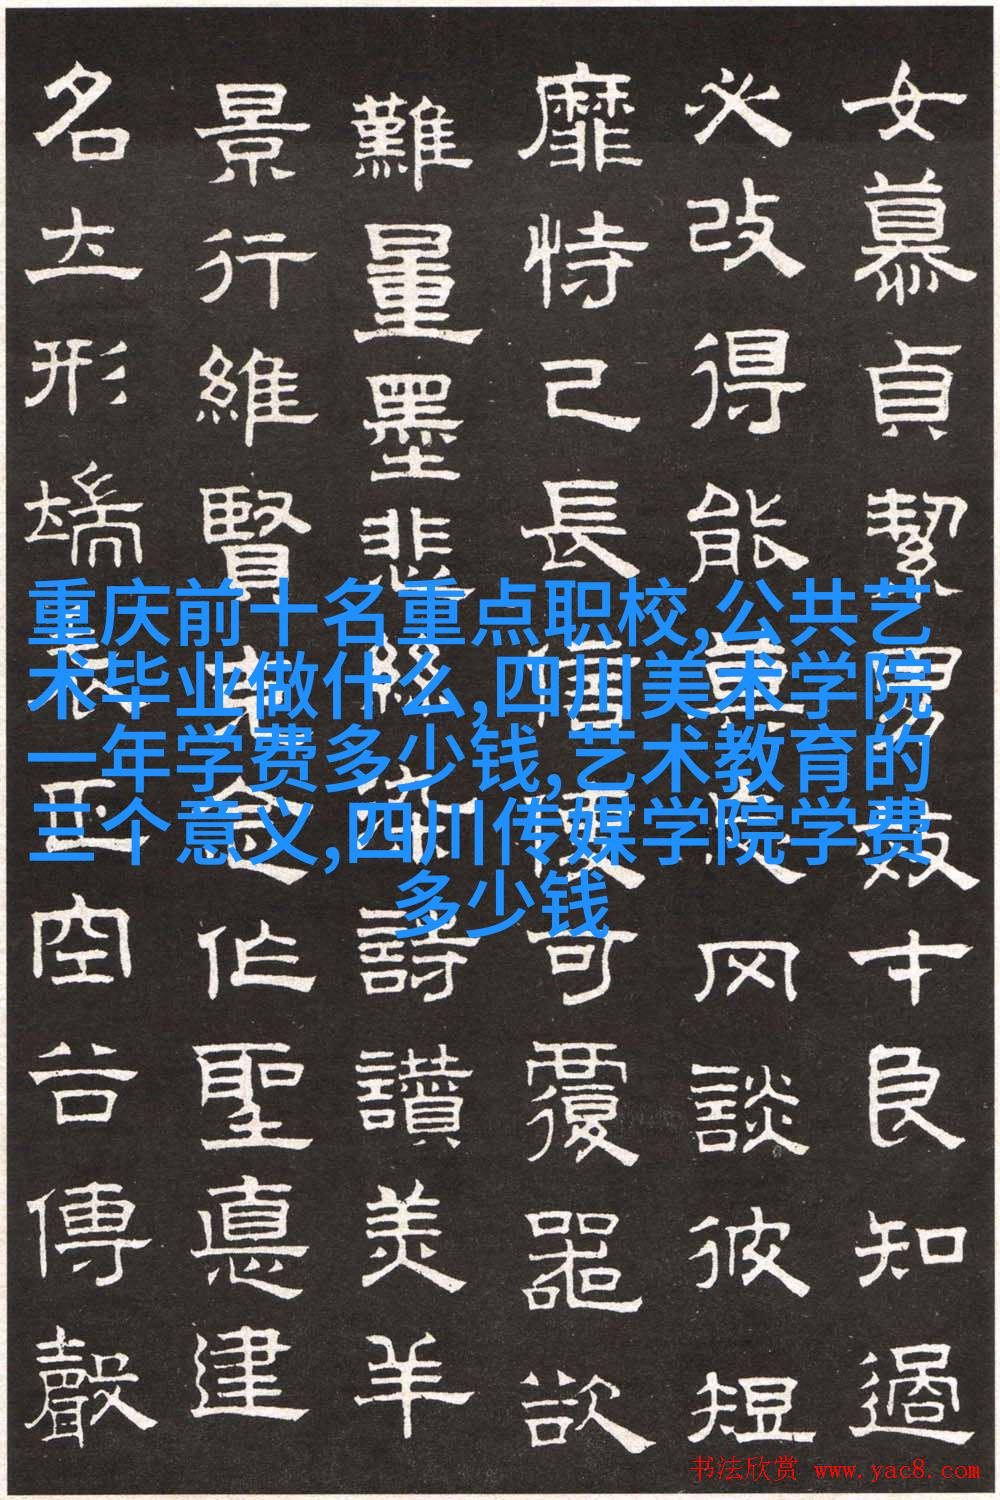 女慕貞絜男效才良知過
必改得能莫忘罔談彼短
靡恃己長信使可覆器欲
難量墨悲絲染詩讚羔羊
景行維賢克念作聖悳建
名立形端表正空谷傳聲
重庆前十名重点职校,公共艺
术毕业做什么,四川美术学院
一年学费多少钱,艺术教育的
三个意义,四川传媒学院学费
多少钱
书法欣赏 www.yac8.com